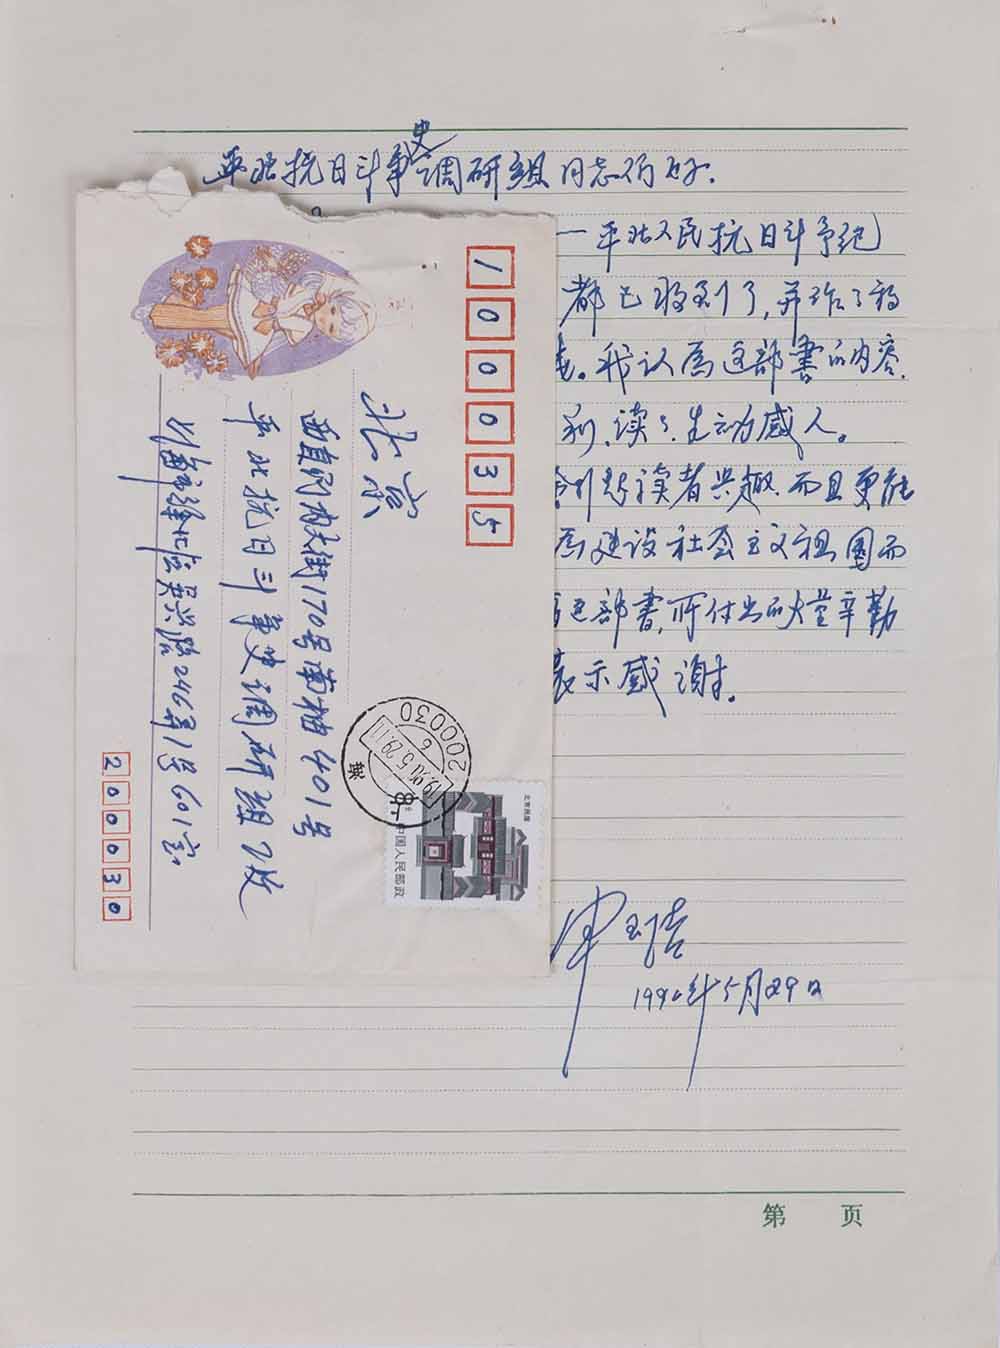 平北抗日斗争史调研组同志们好.
一平北人民抗日斗争纪
都已收到了,并作了初
我认为这部书的内容.
利,读了生动感人。
引起读者兴趣.而且更能
为建设社会主义祖国而
这部书,所付出的大量辛勤
表示感谢。
1990年5月29日
第 页
100035
北京
西直门内大街170号南楼401号
平北抗日斗争史调研组收
上海市徐汇区吴兴路246弄1号601室
200030
200030
1990.5.29.11
6
8分
中国人民邮政
北京民居